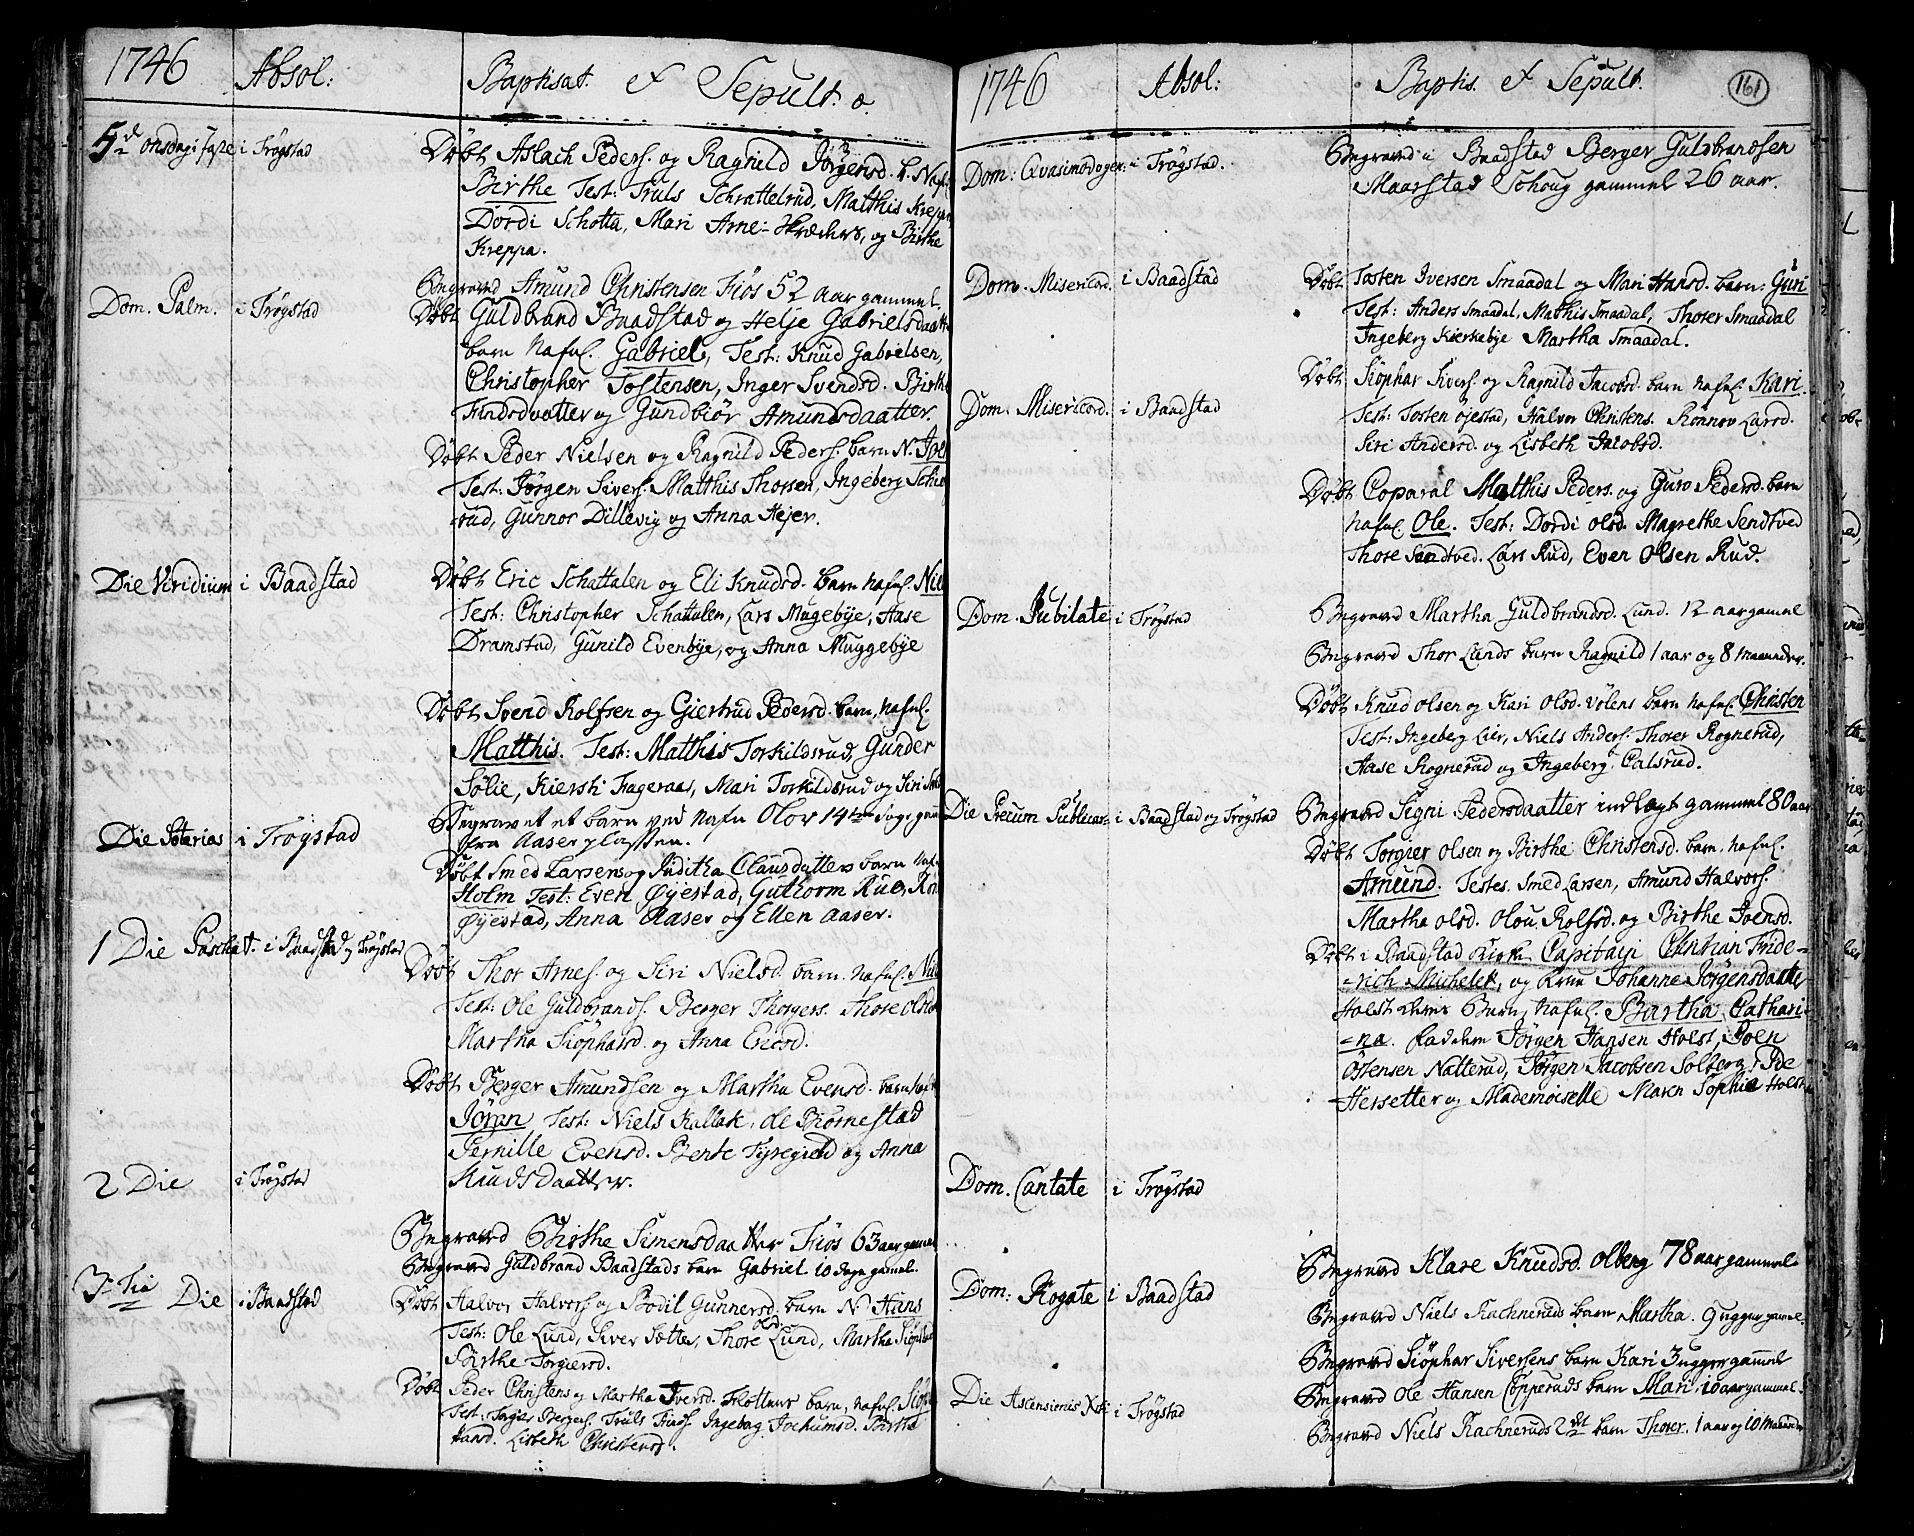 1746 Absol: Baptisat. et Sepult.
5d onsdag i faste i Trøgstad
Døbt Aslach Peders. og Ragnild Jørgensd. b. Nafn
Birthe Test: Truls Schrattelrud, Matthis Kreppen
Dordi Schotta, Mari Arne- og Birthe
Kreppa.
Begraved Amund Christensen Fiøs 52 aar gammel
Dom. Palm. i Trøgstad
Døbt Guldbrand Baadstad og Helje Gabrielsdaatter
barn Nafnl. Gabriel, Test: Knud Gabrielsen,
Christopher Tostensen, Inger Svendsd. Birthe
Findsdaatter og Gundbiør Amundsdaatter.
Døbt Peder Nielsen og Ragnild Peders. barn N. Joel
Test: Jørgen Sivers. Matthis Thorsen, Ingeberg
rud, Gunnor Dillevig og Anna Hejer.
Die Viridium i Baadstad
Døbt Eric Schattalen og Eli Knudsd. barn nafnl.
Test: Christopher Schattalen, Lars Mugebÿe, Aase
Dramstad, Gunild Evenbÿe, og Anna Muggebÿe
Døbt Svend Rolfsen og Giertrud Pedersd. barn, nafnl.
Matthis. Test: Matthis Torkildsrud, Gunder
Sølie, Kiersti Fageraas, Mari Torkildsrud og Siri
Begravet et barn ved nafn Olov 14
fra Aaserplassen.
Die Soterias i Trøgstad
Døbt Smed Larsens og Juditha Clausdatters barn
Holm Test: Even Øÿestad, Guthorm Rud,
Øÿestad, Anna Aaser og Ellen Aaser.
1 Die Paschat. i Baadstad og Trøgstad
Døbt Thor Arnes. og Siri Nielsd. barn. nafnl.
Test: Ole Guldbrands. Berger Thorgers. Thore olsd
Martha Siøpharsd. og Anna Ericsd.
Døbt Berger Amundsen og Martha Evensd. barn
Jøran, Test: Niels Kallak, ole Biørnestad
Pernille Evensd. Berte og Anna
Knudsdaatter.
2 Die i Trøgstad
Begraved Birthe Simensdaatter Fiøs 63 aar gammel
Begraved Guldbrand Baadstads barn Gabriel 10 dage gamel.
3tia Die i Baadstad
Døbt Halvor Halvors. og Bodil Gunnersd. barn N. Hans
Test: Ole Lund, Siver Sætter, Thore olsd. Lund, Martha
Birthe Torgiersd.
Døbt Peder Christens. og Martha Iversd. barn, nafnl.
Test: Torgier Berges. Truls Finds. Ingebor Jochumsd. Birthe
Hansd. Lisbeth Christensd.
1746 Absol: Baptis. et Sepult. 161
Dom: Qvasimodogen: i Trøgstad.
Begraved i Baadstad Berger Guldbrandsen
Maarstad Schoug gammel 26 aar.
Dom. Misericord. i Baadstad
Døbt Tosten Iversen Smaadal og Mari Hansd. barn: Guri
Test: Anders Smaadal, Mathis Smaadal, Thorer Smaadal
Ingeberg Kierkebÿe Martha Smaadal.
Dom: Misericord. i Baadstad
Døbt Siøphar Sivers. og Ragnild Jacobsd. barn nafnl. Kari.
Test: Tosten Øjestad, Halvor Christens. Rønnov Larsd.
Siri Andersd. og Lisbeth Jacobsd.
Døbt Coporal Matthis Peders. og Guro Pedersd. barn
Nafnl. Ole. Test: Dordi olsd. Magrethe Sendtved
Thore Sendtved. Lars Rud, Even Olsen Rud.
Dom. Jubilate i Trøgstad
Begraved Martha Guldbrandsd. Lund. 12 aar gamel
Begraved Thor Lunds barn Ragnild 1 aar og 8 maaneder.
Døbt Knud olsen og Kari olsd. Volens barn nafnl. Christen
Test: Ingeberg Lier, Niels Anders. Thorer Rognerud,
Aase Rognerud og Ingeberg Calsrud.
Die Precum Publicar: i Baadstad og Trøgstad
Begraved Signi Pedersdaatter indlagt gammel 80 aar
Døbt Torgier olsen og Birthe Christensd. barn. nafnl.
Amund. Testes. Smed Larsen, Amund Halvors.
Martha olsd. Olou Rolfsd. og Birthe Joensd.
Døbt i Baadstad Kirke Capitain Christian Fride-
-rich Michelet, og Frue Johanne Jørgensdaatter
Holst deres Barn, nafnl. Bartha Cathari-
-na. faddere Jørgen Hansen Holst, Poen
Østensen Natterud, Jørgen Jacobsen Solberg,
Hersetter og Mademoiselle Maren Sophie Holst
Dom. Cantate i Trøgstad
Begraved Klare Knudsd. Olberg 78 aar gammel
Dom: Rogate i Baadstad
Begraved Niels Rachneruds barn Martha. 9 uggur gamel.
Begraved Siøphar Siversens barn Kari 3 ugger gammel
Die Ascensionis Xsti i Trøgstad
Begraved Ole Hansen Copperuds barn Mari. 10 aar gammel.
Begraved Niels Rachneruds 2det barn Thorer. 1 aar og 10 maaneder